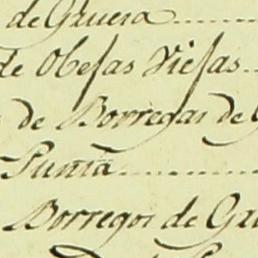 de Gruesa
de Obejas Viejas
de Borregas de G
Punta
Borregos de Gru